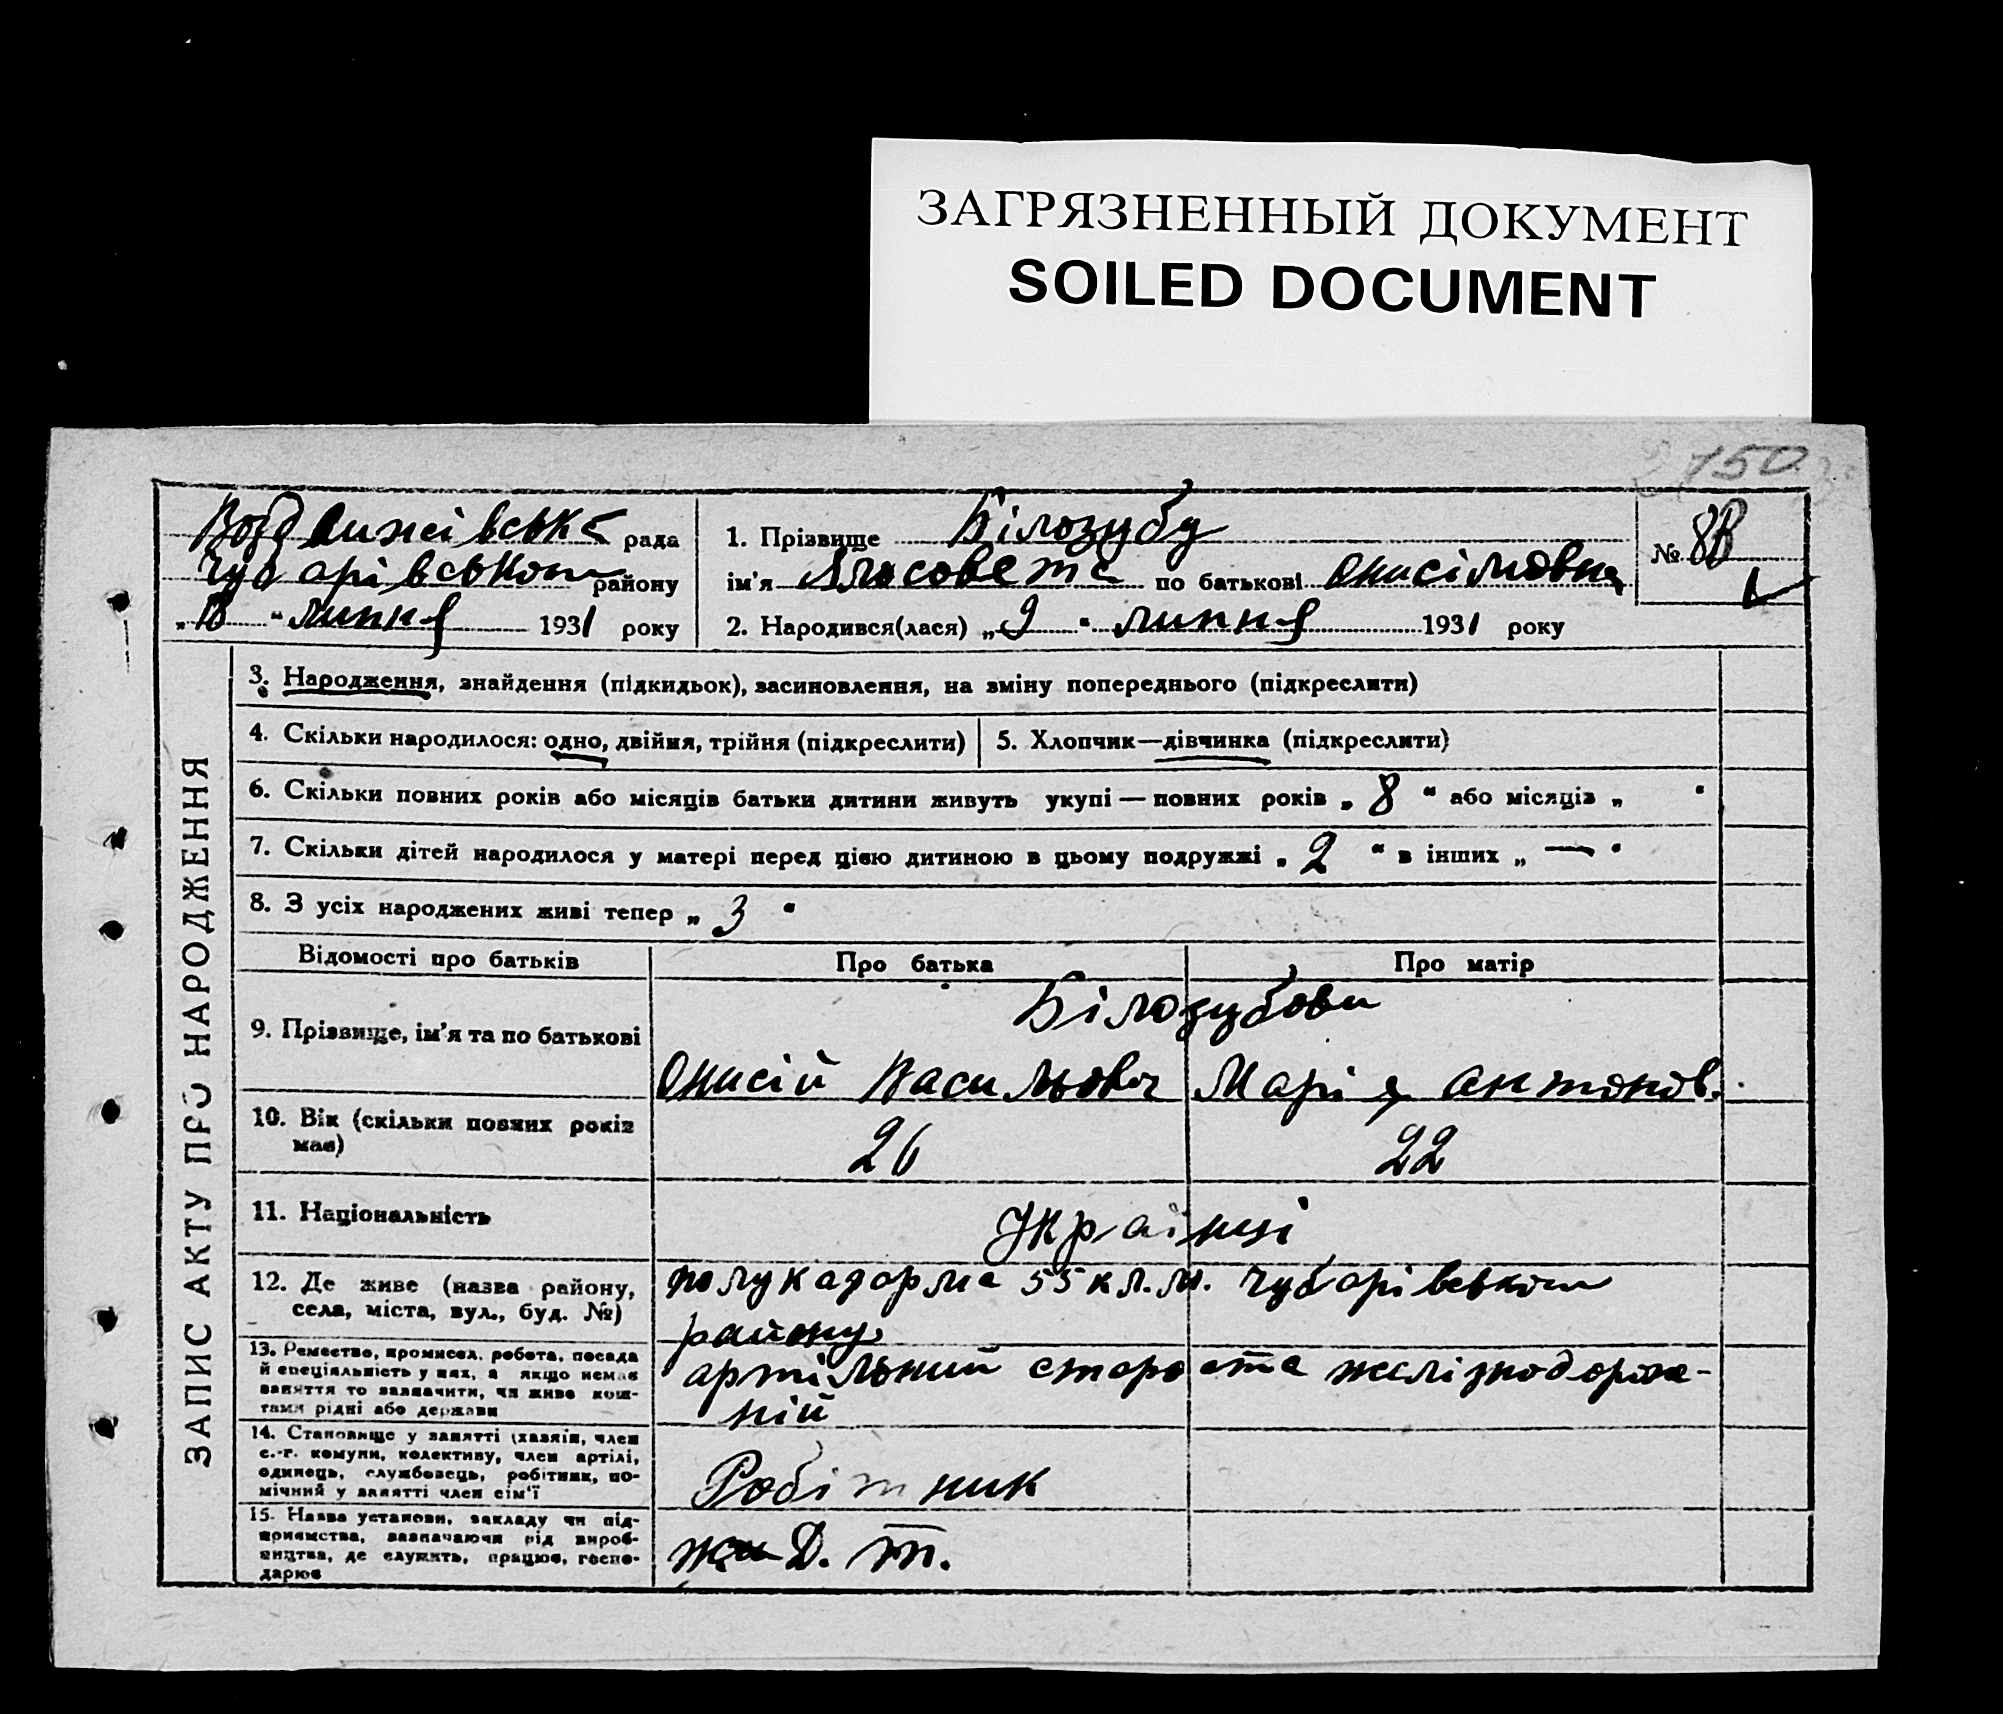 ЗАГРЯЗНЕННЫЙ ДОКУМЕНТ
SOILED DOCUMENT
150
рада
Чубарівського району
"18" липня 1931 року
1. Прізвище Білозуб
ім'я по батькові Онисімовна
2. Народився(лася) „9" липня 1931 року
№ 88
ЗАПИС АКТУ ПРО НАРОДЖЕННЯ
3. Народження, знайдення (підкидьок), засиновлення, на зміну попереднього (підкреслити)
4. Скільки народилося: одно, двійня, трійня (підкреслити)
5. Хлопчик—дівчинка (підкреслити)
6. Скільки повних років або місяців батьки дитини живуть укупі — повних років „ 8 " або місяців „ "
7. Скільки дітей народилося у матері перед цією дитиною в цьому подружжі „ 2 " в інших „ — "
8. З усіх народжених живі тепер „ 3 "
Відомості про батьків
Про батька
Про матір
9. Прізвище, ім'я та по батькові
Білозубови
Онисій Васильович
Марія Антонов.
10. Вік (скільки повних років
має)
26
22
11. Національність
Українці
12. Де живе (назва району,
села, міста, вул., буд. №)
полуказарма 55 кл.м. Чубарівського
району
13. Ремество, промисел, робота, посада
й спеціяльність у них, а якщо немає
заняття то зазначити, чи живе кош-
тами рідні або держави
артільний староста желізнодорож-
ній
14. Становище у занятті (хазяїн, член
с.-г. комуни, колективу, член артілі,
одинець, службовець, робітник, по-
мічний у занятті член сім'ї
Робітник
15. Назва установи, закладу чи під-
приємства, зазначаючи рід вироб-
ництва, де служить, працює, госпо-
дарює
Д. т.